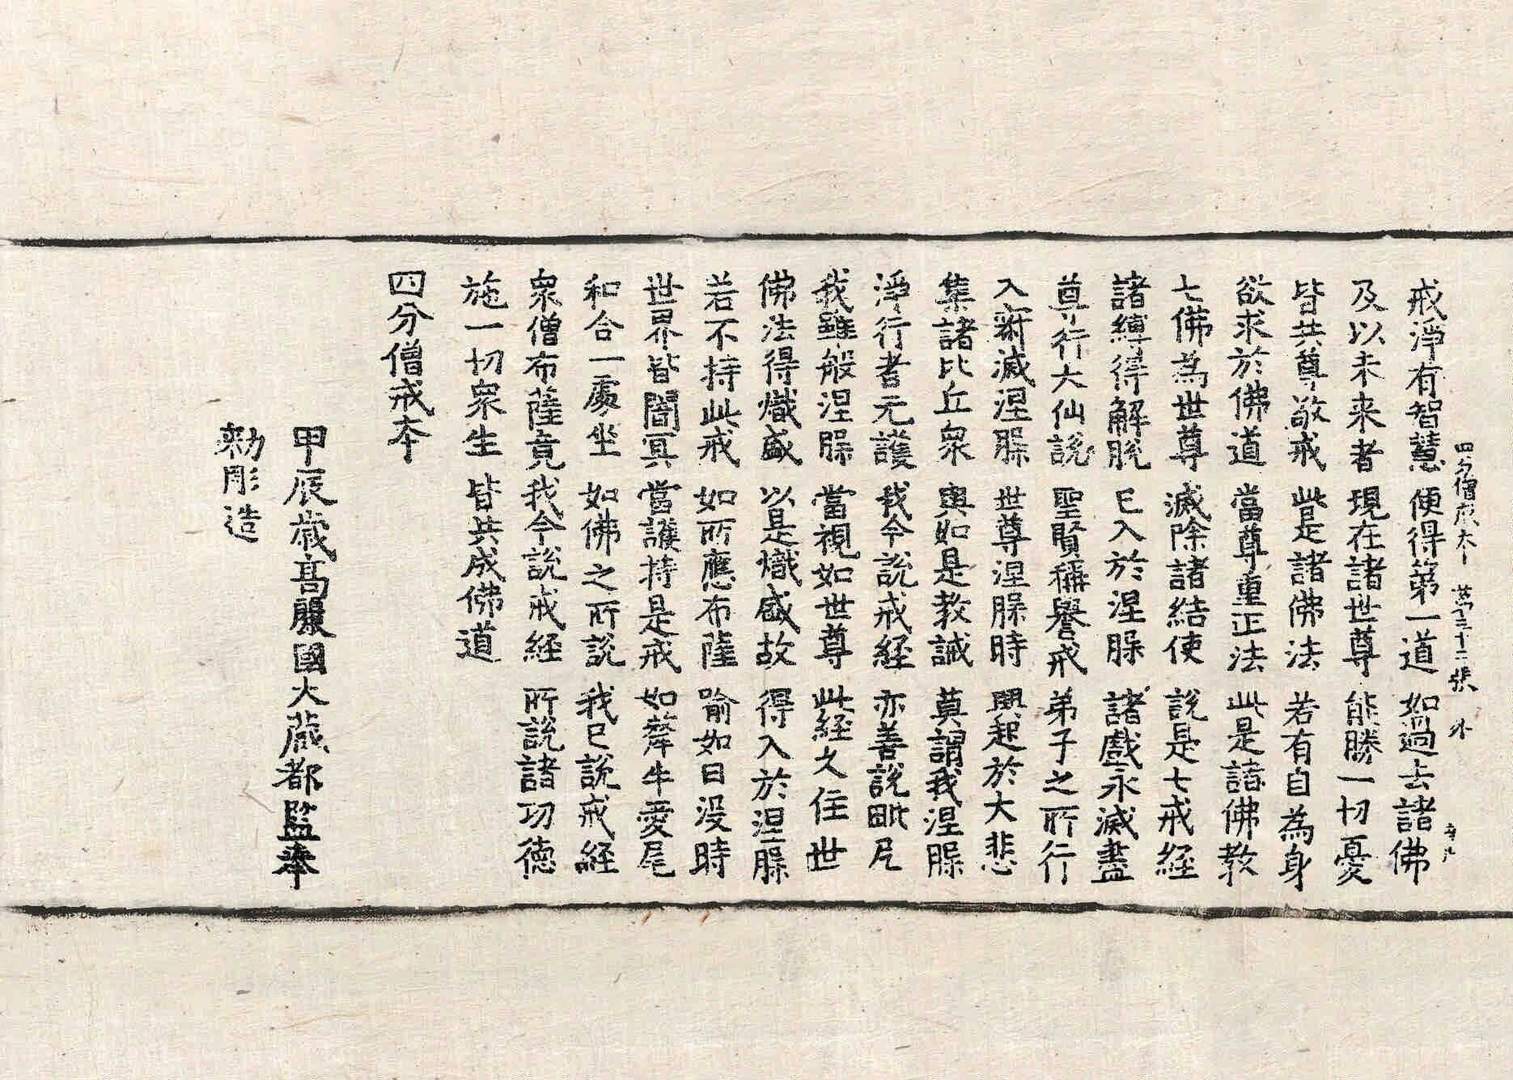 戒淨有智慧 便得第一道 如過去諸佛
及以未来者 現在諸世尊 能勝一切憂
皆共尊敬戒 此是諸佛法 若有自為身
欲求於佛道 當尊重正法 此是諸佛教
七佛為世尊 滅除諸結使 說是七戒經
諸縛得解脫 已入於涅槃 諸戲永滅盡
尊行大仙說 聖賢稱譽戒 弟子之所行
入寂滅涅槃 世尊涅槃時 興起於大悲
集諸比丘衆 與如是教誡 莫謂我涅槃
淨行者无護 我今說戒經 亦善說毗尼
我雖般涅槃 當視如世尊 此經久住世
佛法得熾盛 以是熾盛故 得入於涅槃
若不持此戒 如所應布薩 喻如日没時
世界皆闇冥 當護持是戒 如犛牛愛尾
和合一處坐 如佛之所說 我已說戒經
衆僧布薩竟 我今說戒經 所說諸功德
施一切衆生 皆共成佛道
四分僧戒本
甲辰歳高麗國大藏都監奉
勑彫造
四分僧戒本 第三十二張